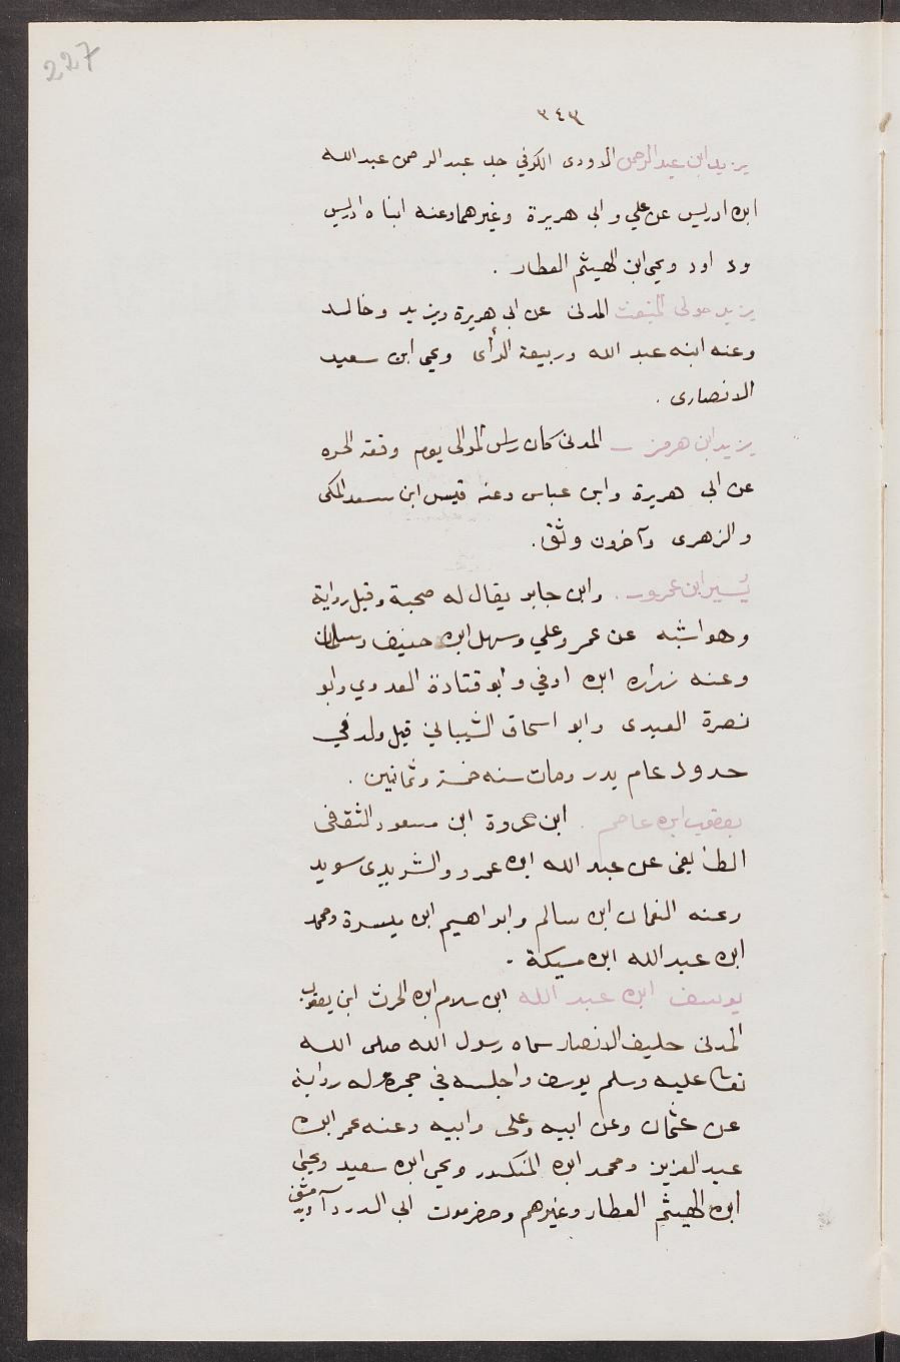 227
٣٤٣
يزيد ابن عبد الرحمن الاودى الكوفي جد عبد الرحمن عبد الله
ابن ادريس عن علي وابى هريرة وغيرهما وعنه ابناه ادريس
وداود ويحى ابن الهيثم العطار .
يزيد مولى المنبعث المدنى عن ابى هريرة ويزيد وخالد
وعنه ابنه عبد الله وربيعة الرأى ويحى ابن سعيد
الانصارى .
يزيد ابن هرمز ــ المدنى كان راس الموالى يوم وقعة الحره
عن ابى هريرة وابن عباس وعنه قيس ابن سعد المكى
والزهرى وآخرون وثق .
يُسير ابن عمرو . وابن جابر يقال له صحبة وقيل رواية
وهو اشبه عن عمر وعلي وسهل ابن حنيف وسلمان
وعنه زراره ابن اوفي وابو قتادة العدوي وابو
نصرة العبدى وابو اسحاق الشيباني قيل ولد في
حدود عام بدر ومات سنه خمسة وثمانين .
يعقوب ابن عاصم . ابن عروة ابن مسعود الثقفى
الطايفى عن عبد الله ابن عمرو والشريدى سويد
وعنه النعمان ابن سالم وابراهيم ابن ميسرة ومحمد
ابن عبد الله ابن مسيكة .
يوسف ابن عبد الله ابن سلام ابن الحرث ابن يعقوب
المدنى حليف الانصار سماه رسول الله صلى الله
تعا عليه وسلم يوسف واجلسه في حجره له رواية
عن عثمان وعن ابيه وعلى وابيه وعنه عمر ابن
عبد العزيز ومحمد ابن المنكدر ويحى ابن سعيد ويحيى
ابن الهيثم العطار وغيرهم وحضر موت ابى الدردآ